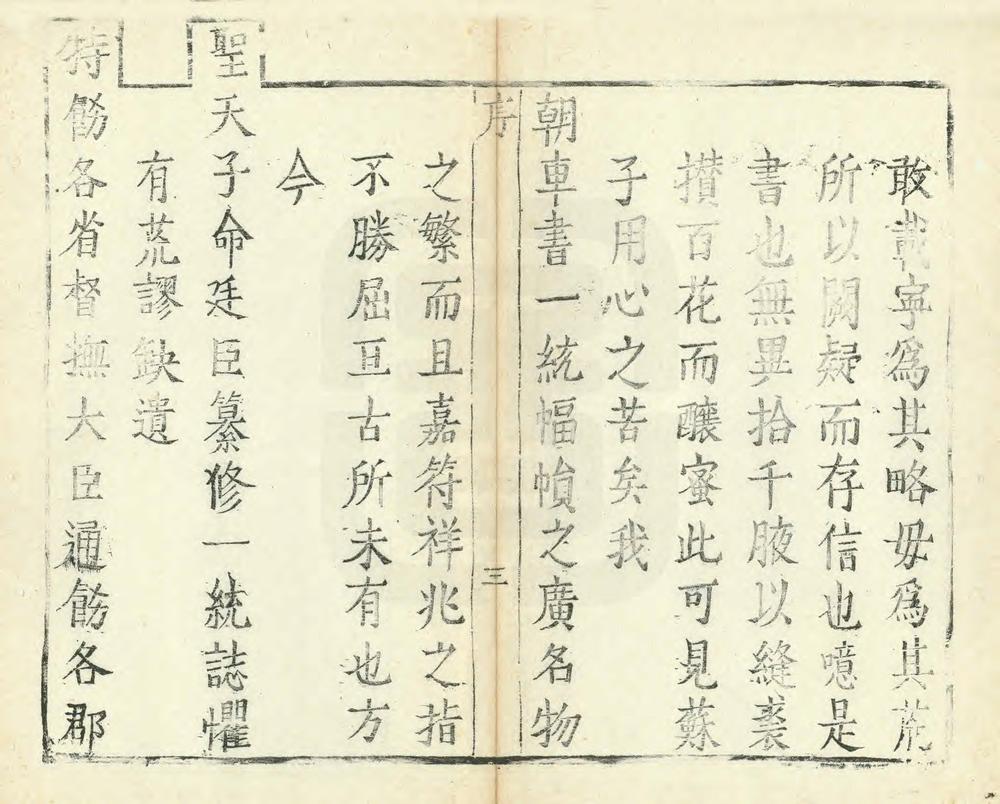 敢載寧爲其略毋爲其荒
所以闕疑而存信也噫是
書也無異拾千腋以縫裘
攅百花而釀蜜此可見蘇
子用心之苦矣我
朝車書一統幅㡧之廣名物
序
三
之繁而且嘉符祥兆之指
不勝屈亘古所未有也方
今
聖天子命廷臣纂修一統誌懼
有荒謬缺遺
特飭各省督撫大臣通飭各郡